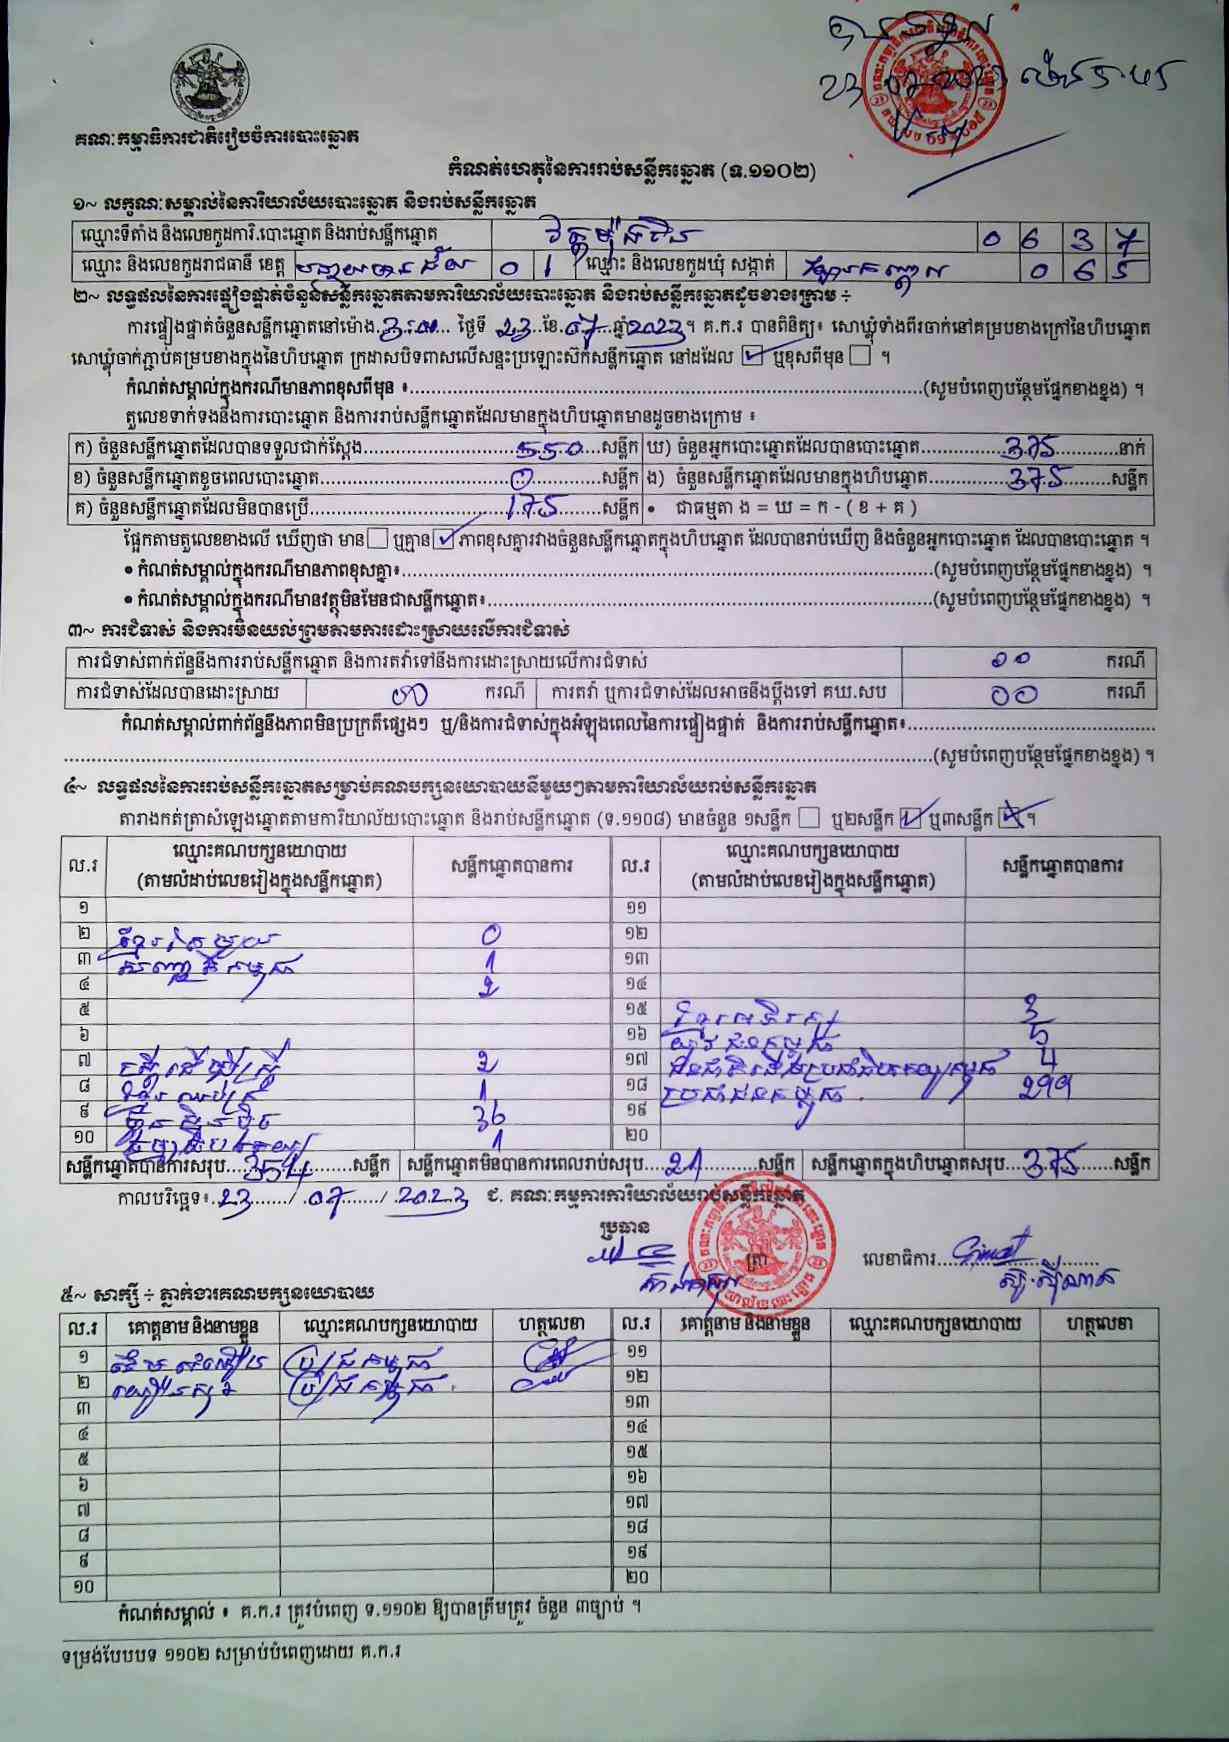 គណៈកម្មាធិការជាតិរៀបចំការបោះឆ្នោត
កំណត់ហេតុនៃការរាប់សន្លឹកឆ្នោត (ទ.១១០២)
១~ លក្ខណៈសម្គាល់នៃការិយាល័យបោះឆ្នោត និងរាប់សន្លឹកឆ្នោត
ឈ្មោះទីតាំង និងលេខកូដការិ.បោះឆ្នោត និងរាប់សន្លឹកឆ្នោត 0 6 3 7
ឈ្មោះ និងលេខកូដរាជធានី ខេត្ត បន្ទាយមានជ័យ 0 1 ឈ្មោះ និងលេខកូដឃុំ សង្កាត់ 0 6 5
២~ លទ្ធផលនៃការផ្ទៀងផ្ទាត់ចំនួនសន្លឹកឆ្នោតតាមការិយាល័យបោះឆ្នោត និងរាប់សន្លឹកឆ្នោតដូចខាងក្រោម ÷
ការផ្ទៀងផ្ទាត់ចំនួនសន្លឹកឆ្នោតនៅម៉ោង 3:00 ថ្ងៃទី 23 ខែ 07 ឆ្នាំ 2023 ។ គ.ក.រ បានពិនិត្យ៖ សោឃ្លុំទាំងពីរចាក់នៅគម្របខាងក្រៅនៃហិបឆ្នោត
សោឃ្លុំចាក់ភ្ជាប់គម្របខាងក្នុងនៃហិបឆ្នោត ក្រដាសបិទពាសលើសន្ទះប្រឡោះស៊កសន្លឹកឆ្នោត នៅដដែល ☑ ឬខុសពីមុន ☐ ។
កំណត់សម្គាល់ក្នុងករណីមានភាពខុសពីមុន ៖ (សូមបំពេញបន្ថែមផ្នែកខាងខ្នង) ។
តួលេខទាក់ទងនឹងការបោះឆ្នោត និងការរាប់សន្លឹកឆ្នោតដែលមានក្នុងហិបឆ្នោតមានដូចខាងក្រោម ៖
ក) ចំនួនសន្លឹកឆ្នោតដែលបានទទួលជាក់ស្តែង 550 សន្លឹក ឃ) ចំនួនអ្នកបោះឆ្នោតដែលបានបោះឆ្នោត 375 នាក់
ខ) ចំនួនសន្លឹកឆ្នោតខូចពេលបោះឆ្នោត 0 សន្លឹក ង) ចំនួនសន្លឹកឆ្នោតដែលមានក្នុងហិបឆ្នោត 375 សន្លឹក
គ) ចំនួនសន្លឹកឆ្នោតដែលមិនបានប្រើ 175 សន្លឹក • ជាធម្មតា ង = ឃ = ក - ( ខ + គ )
ផ្អែកតាមតួលេខខាងលើ ឃើញថា មាន ☐ ឬគ្មាន ☑ ភាពខុសគ្នារវាងចំនួនសន្លឹកឆ្នោតក្នុងហិបឆ្នោត ដែលបានរាប់ឃើញ និងចំនួនអ្នកបោះឆ្នោត ដែលបានបោះឆ្នោត ។
• កំណត់សម្គាល់ក្នុងករណីមានភាពខុសគ្នា៖ (សូមបំពេញបន្ថែមផ្នែកខាងខ្នង) ។
• កំណត់សម្គាល់ក្នុងករណីមានវត្ថុមិនមែនជាសន្លឹកឆ្នោត៖ (សូមបំពេញបន្ថែមផ្នែកខាងខ្នង) ។
៣~ ការជំទាស់ និងការមិនយល់ព្រមតាមការដោះស្រាយលើការជំទាស់
ការជំទាស់ពាក់ព័ន្ធនឹងការរាប់សន្លឹកឆ្នោត និងការតវ៉ាទៅនឹងការដោះស្រាយលើការជំទាស់ 00 ករណី
ការជំទាស់ដែលបានដោះស្រាយ 00 ករណី ការតវ៉ា ឬការជំទាស់ដែលអាចនឹងប្តឹងទៅ គឃ.សប 00 ករណី
កំណត់សម្គាល់ពាក់ព័ន្ធនឹងភាពមិនប្រក្រតីផ្សេងៗ ឬ/និងការជំទាស់ក្នុងអំឡុងពេលនៃការផ្ទៀងផ្ទាត់ និងការរាប់សន្លឹកឆ្នោត៖
(សូមបំពេញបន្ថែមផ្នែកខាងខ្នង) ។
៤~ លទ្ធផលនៃការរាប់សន្លឹកឆ្នោតសម្រាប់គណបក្សនយោបាយនីមួយៗតាមការិយាល័យរាប់សន្លឹកឆ្នោត
តារាងកត់ត្រាសំឡេងឆ្នោតតាមការិយាល័យបោះឆ្នោត និងរាប់សន្លឹកឆ្នោត (ទ.១១០៨) មានចំនួន ១សន្លឹក ☐ ឬ២សន្លឹក ☑ ឬ៣សន្លឹក ☒ ។
ល.រ ឈ្មោះគណបក្សនយោបាយ (តាមលំដាប់លេខរៀងក្នុងសន្លឹកឆ្នោត) សន្លឹកឆ្នោតបានការ ល.រ ឈ្មោះគណបក្សនយោបាយ (តាមលំដាប់លេខរៀងក្នុងសន្លឹកឆ្នោត) សន្លឹកឆ្នោតបានការ
១ ១១
២ ខ្មែររួមគ្នា 0 ១២
៣ 1 ១៣
៤ 2 ១៤
៥ ១៥ 3
៦ ១៦ 5
៧ 2 ១៧ 4
៨ 1 ១៨ ប្រជាជនកម្ពុជា 299
៩ 36 ១៩
១០ 1 ២០
សន្លឹកឆ្នោតបានការសរុប 354 សន្លឹក សន្លឹកឆ្នោតមិនបានការពេលរាប់សរុប 21 សន្លឹក សន្លឹកឆ្នោតក្នុងហិបឆ្នោតសរុប 375 សន្លឹក
កាលបរិច្ឆេទ៖ 23 / 07 / 2023 ជ. គណៈកម្មការការិយាល័យរាប់សន្លឹកឆ្នោត
ប្រធាន
ត្រា លេខាធិការ
៥~ សាក្សី ÷ ភ្នាក់ងារគណបក្សនយោបាយ
ល.រ គោត្តនាម និងនាមខ្លួន ឈ្មោះគណបក្សនយោបាយ ហត្ថលេខា ល.រ គោត្តនាម និងនាមខ្លួន ឈ្មោះគណបក្សនយោបាយ ហត្ថលេខា
១ ១១
២ ១២
៣ ១៣
៤ ១៤
៥ ១៥
៦ ១៦
៧ ១៧
៨ ១៨
៩ ១៩
១០ ២០
កំណត់សម្គាល់ ៖ គ.ក.រ ត្រូវបំពេញ ទ.១១០២ ឱ្យបានត្រឹមត្រូវ ចំនួន ៣ច្បាប់ ។
ទម្រង់បែបបទ ១១០២ សម្រាប់បំពេញដោយ គ.ក.រ